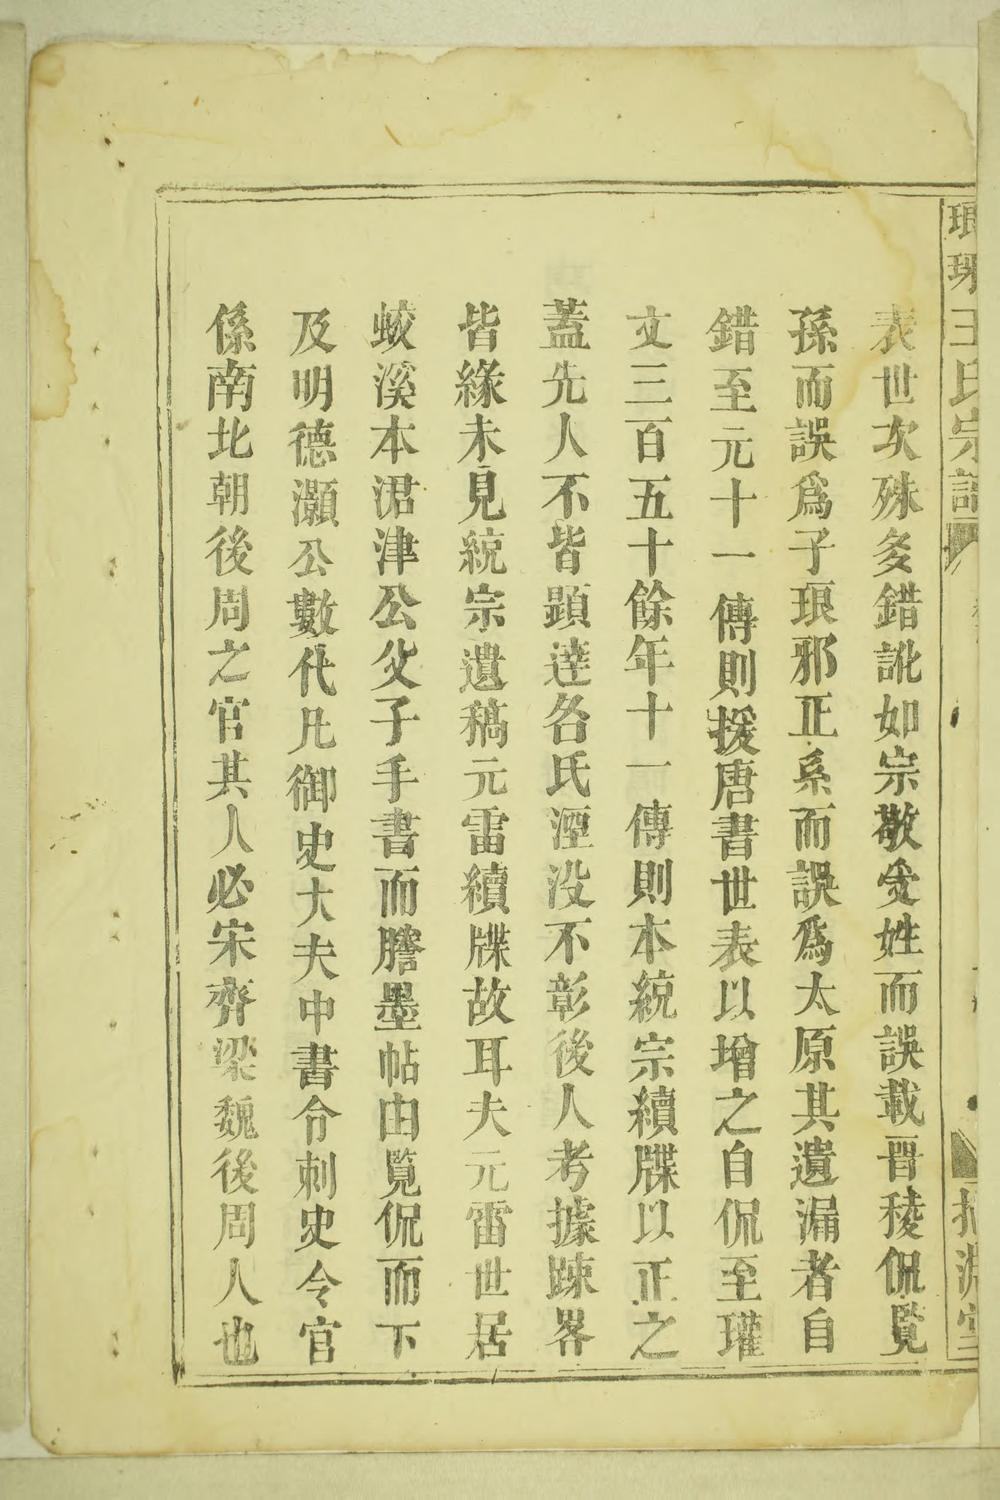 琅琊王氏宗譜
表世次殊多錯訛如宗敬受姓而誤載晋稜侃覧
孫而誤爲子琅邪正系而誤爲太原其遺漏者自
錯至元十一傳則援唐書世表以增之自侃至瓘
文三百五十餘年十一傳則本統宗續牒以正之
蓋先人不皆顕達各氏湮没不彰後人考據踈畧
皆緣未見統宗遺稿元雷續牒故耳夫元雷世居
蛟溪本涒津公父子手書而謄墨帖由覧侃而下
及明德灝公數代凡御史大夫中書令刺史令官
係南北朝後周之官其人必宋齊梁魏後周人也